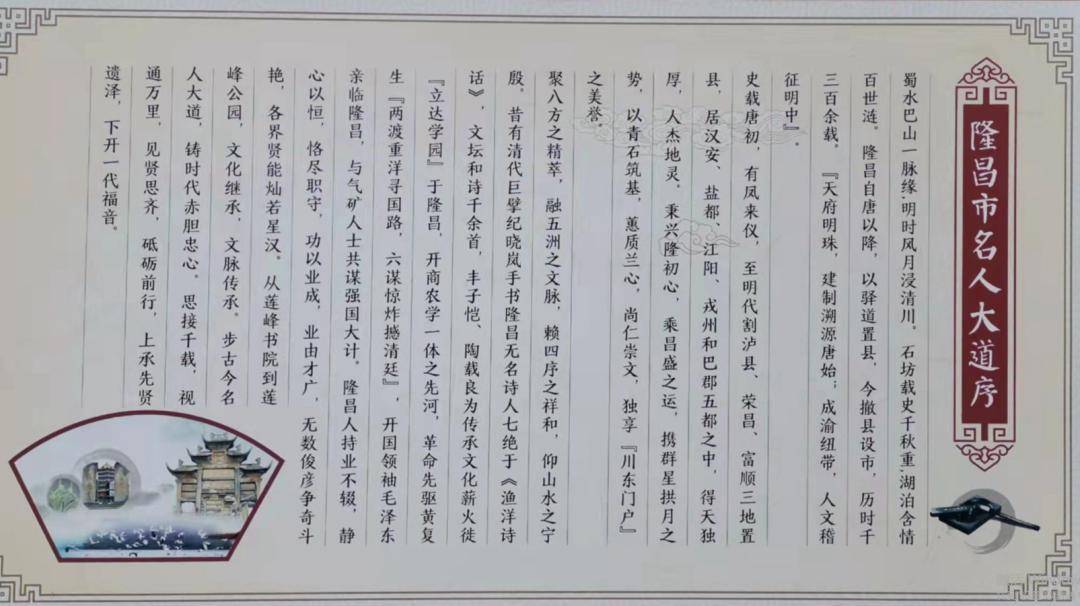 隆昌市名人大道序
蜀水巴山一脉缘,明时风月浸清川。石坊载史千秋重,湖泊含情
百世涟。隆昌自唐以降,以驿道置县,今撤县设市,历时千
三百余载。『天府明珠,建制溯源唐始;成渝纽带,人文稽
征明中』。
史载唐初,有凤来仪,至明代割泸县、荣昌、富顺三地置
县,居汉安、盐都、江阳、戎州和巴郡五都之中,得天独
厚,人杰地灵。秉兴隆初心,乘昌盛之运,携群星拱月之
势,以青石筑基,蕙质兰心,尚仁崇文,独享『川东门户』
之美誉。
聚八方之精萃,融五洲之文脉,赖四序之祥和,仰山水之宁
殷。昔有清代巨擘纪晓岚手书隆昌无名诗人七绝于《渔洋诗
话》,文坛和诗千余首,丰子恺、陶载良为传承文化薪火徙
『立达学园』于隆昌,开商农学一体之先河,革命先驱黄复
生『两渡重洋寻国路,六谋惊炸撼清廷』,开国领袖毛泽东
亲临隆昌,与气矿人士共谋强国大计。隆昌人持业不辍,静
心以恒,恪尽职守,功以业成,业由才广,无数俊彦争奇斗
艳,各界贤能灿若星汉。从莲峰书院到莲
峰公园,文化继承,文脉传承。步古今名
人大道,铸时代赤胆忠心。思接千载,视
通万里,见贤思齐,砥砺前行,上承先贤
遗泽,下开一代福音。